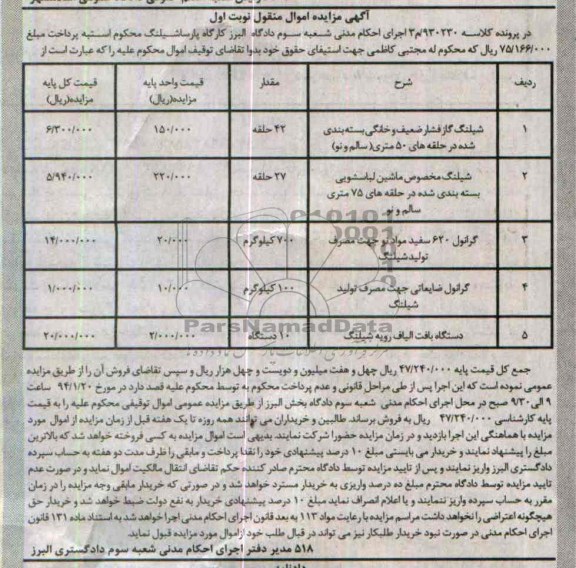 آگهی مزایده اموال منقول نوبت اول
در پرونده کلاسه ۹۳۰۲۳۰/م۳ اجرای احکام مدنی شعبه سوم دادگاه البرز کارگاه پارساشیلنگ محکوم استبه پرداخت مبلغ
۷۵/۱۶۶/۰۰۰ ریال که محکوم له مجتبی کاظمی جهت استیفای حقوق خود بدوا تقاضای توقیف اموال محکوم علیه را که عبارت است از
ردیف شرح مقدار قیمت واحد پایه مزایده(ریال) قیمت کل پایه مزایده(ریال)
۱ شیلنگ گاز فشار ضعیف و خانگی بسته بندی ۴۲ حلقه ۱۵۰/۰۰۰ ۶/۳۰۰/۰۰۰
شده در حلقه های ۵۰ متری( سالم و نو)
۲ شیلنگ مخصوص ماشین لباسشویی ۲۷ حلقه ۲۲۰/۰۰۰ ۵/۹۴۰/۰۰۰
بسته بندی شده در حلقه های ۷۵ متری
سالم و نو
۳ گرانول ۶۲۰ سفید مواد نو جهت مصرف ۷۰۰ کیلوگرم ۲۰/۰۰۰ ۱۴/۰۰۰/۰۰۰
تولیدشیلنگ
۴ گرانول ضایعاتی جهت مصرف تولید ۱۰۰ کیلوگرم ۱۰/۰۰۰ ۱/۰۰۰/۰۰۰
شیلنگ
۵ دستگاه بافت الیاف رویه شیلنگ ۱۰ دستگاه ۲/۰۰۰/۰۰۰ ۲۰/۰۰۰/۰۰۰
ParsNamadData
جمع کل قیمت پایه ۴۷/۲۴۰/۰۰۰ ریال چهل و هفت میلیون و دویست و چهل هزار ریال و سپس تقاضای فروش آن را از طریق مزایده
عمومی نموده است که این اجرا پس از طی مراحل قانونی و عدم پرداخت محکوم به توسط محکوم علیه قصد دارد در مورخ ۹۴/۱/۲۰ ساعت
۹ الی ۹/۳۰ صبح در محل اجرای احکام مدنی شعبه سوم دادگاه بخش البرز از طریق مزایده عمومی اموال توقیفی محکوم علیه را به قیمت
پایه کارشناسی ۴۷/۲۴۰/۰۰۰ ریال به فروش برساند. طالبین و خریداران می توانند همه روزه تا یک هفته قبل از زمان مزایده از اموال مورد
مزایده با هماهنگی این اجرا بازدید و در زمان مزایده حضور شرکت نمایند. بدیهی است اموال مزایده به کسی فروخته خواهد شد که بالاترین
مبلغ را پیشنهاد نمایند و خریدار می بایستی مبلغ ۱۰ درصد پیشنهادی خود را نقدا پرداخت و مابقی را ظرف مدت دو هفته به حساب سپرده
دادگستری البرز واریز نمایند و پس از تایید مزایده توسط دادگاه محترم صادر کننده حکم تقاضای انتقال مالکیت اموال نماید و در صورت عدم
تایید مزایده توسط دادگاه محترم مبلغ ده درصد واریزی به خریدار مسترد خواهد شد و در صورتی که خریدار مابقی وجه مزایده را در زمان
مقرر به حساب سپرده واریز ننمایند و یا اعلام انصراف نماید مبلغ ۱۰ درصد پیشنهادی خریدار به نفع دولت ضبط خواهد شد و خریدار حق
هیچگونه اعتراضی را نخواهد داشت مراسم مزایده با رعایت مواد ۱۱۳ به بعد قانون اجرای احکام مدنی اجرا خواهد شد به استناد ماده ۱۳۱ قانون
اجرای احکام مدنی در صورت نبود خریدار طلبکار نیز می تواند در قبال طلب خود از اموال مورد مزایده قبول نماید.
۵۱۸ مدیر دفتر اجرای احکام مدنی شعبه سوم دادگستری البرز